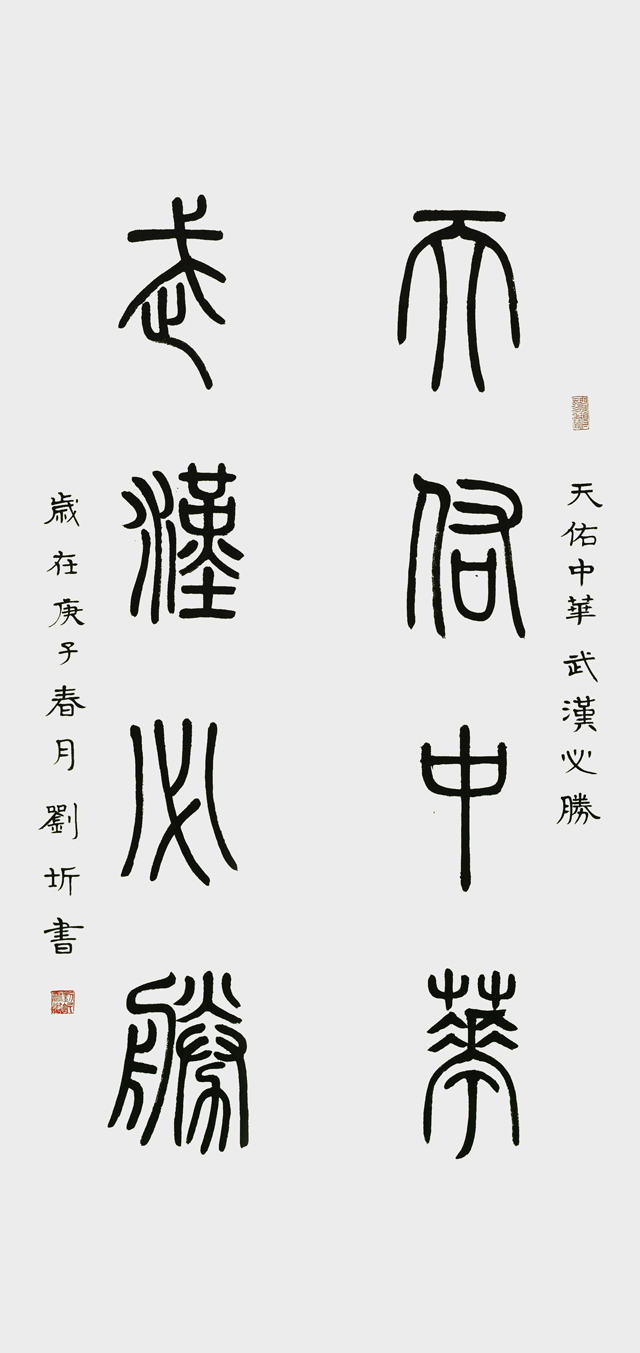 天佑中華武漢必勝
天佑中華
武漢必勝
歲在庚子春月劉圻書